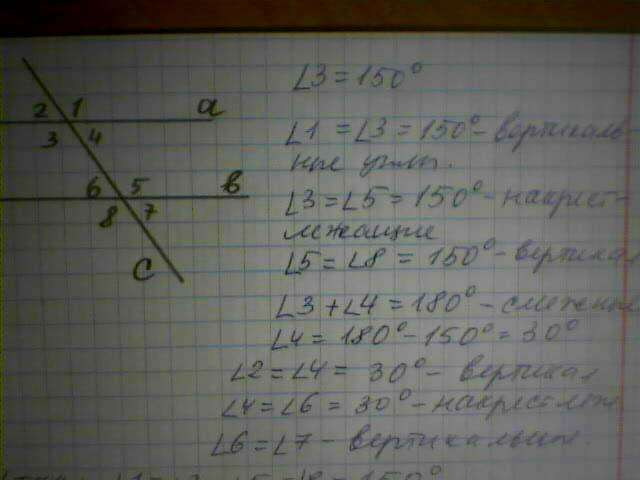 2 1 a
3 4
6 5 в
8 7
c
∠3 = 150°
∠1 = ∠3 = 150° - вертикаль-
ные углы.
∠3 = ∠5 = 150° - накрест-
лежащие
∠5 = ∠8 = 150° - вертикал
∠3 + ∠4 = 180° - смежны
∠4 = 180° - 150° = 30°
∠2 = ∠4 = 30° - вертикал
∠4 = ∠6 = 30° - накрест леж
∠6 = ∠7 - вертикальные.
150°